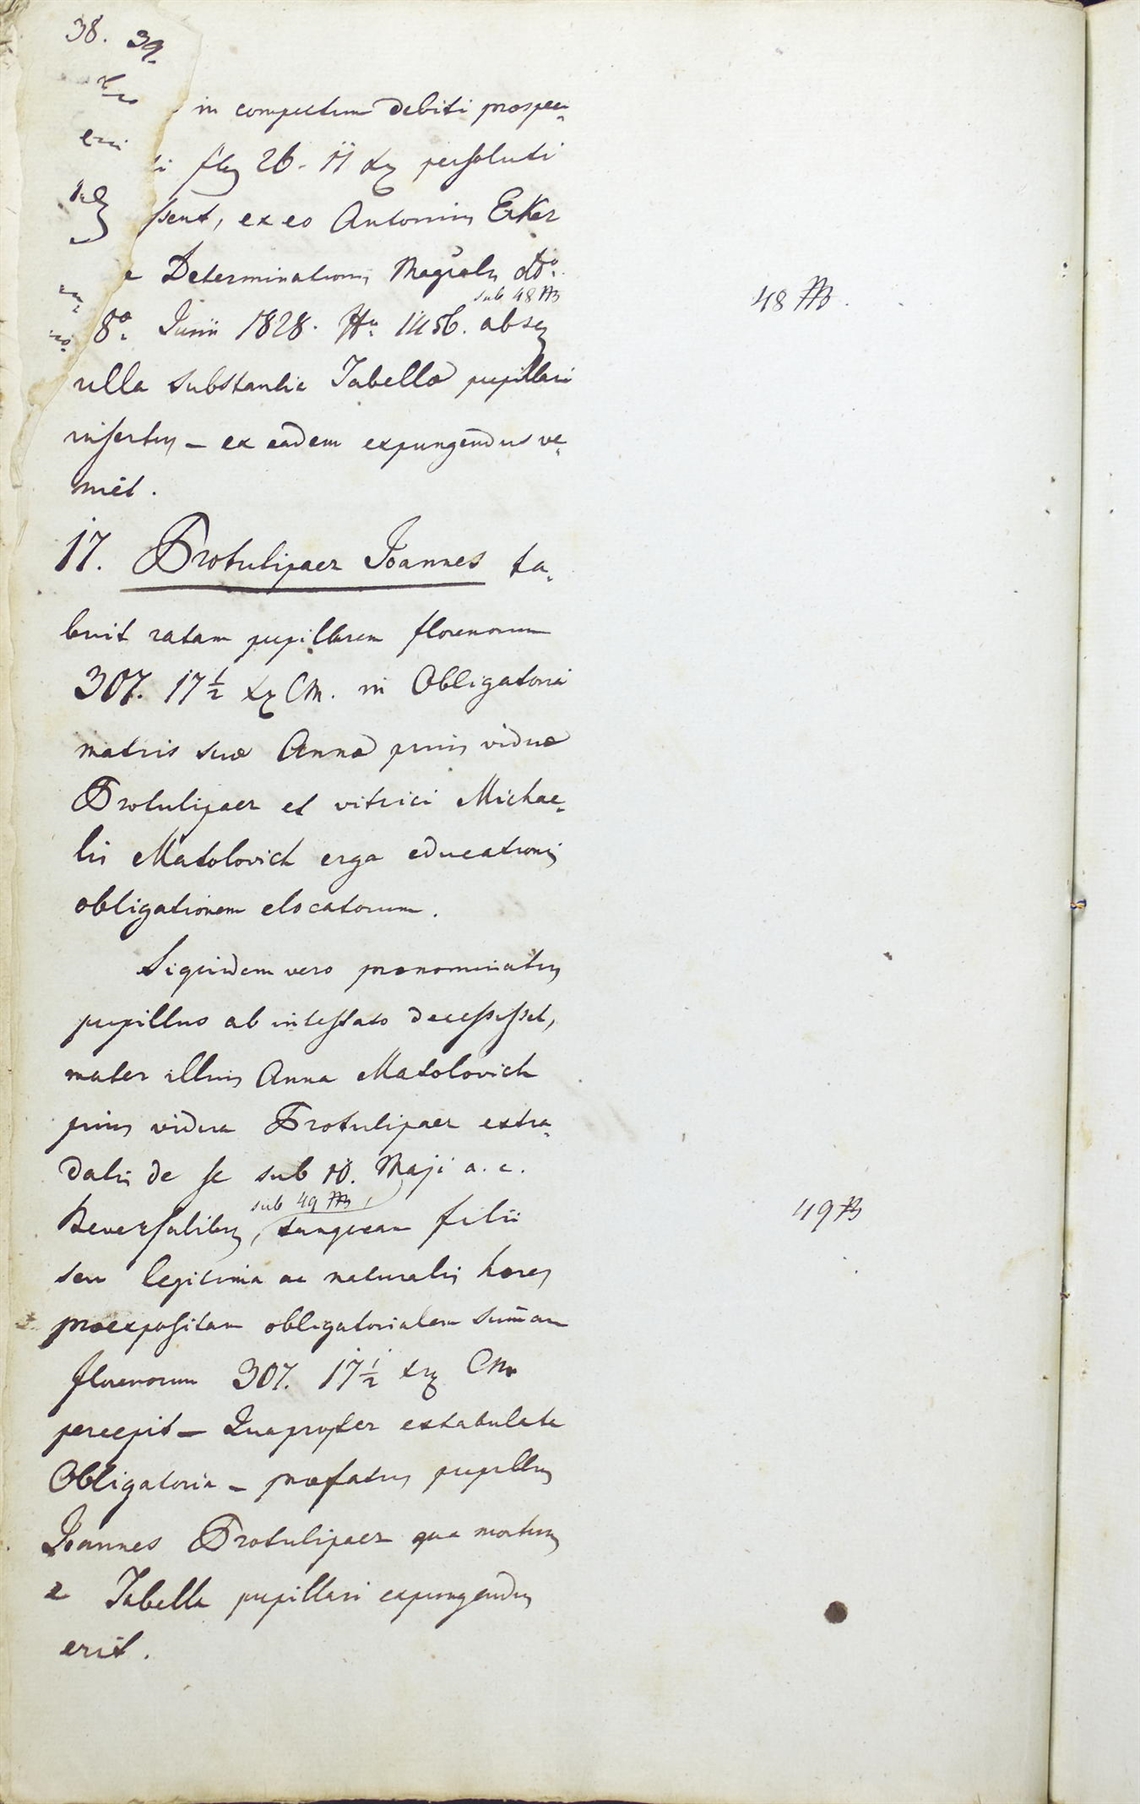 38. 39.
in computum debiti prospec-
ti flor 26. 11 xr persoluti
ssent, ex eo Antonius Erker
e Determinationis Magralis dto.
sub 48 ℔
8a Junii 1828. No 1456. absq
ulla substantia Tabellæ pupillari
insertus – ex eadem expungendus ve-
niet.
48 ℔.
17. Protulipacz Joannes ha-
buit ratam pupillarem florenorum
307. 17 1/2 xr CM. in Obligatoria
matris suæ Annæ prius viduæ
Protulipacz et vitrici Michae-
lis Matolovich erga educationis
obligationem elocatorum.
Siquidem vero prænominatus
pupillus ab intestato decessisset,
mater illius Anna Matolovich
prius vidua Protulipacz extra-
datis de se sub 10. Maji a. c.
sub 49 ℔
Reversalibus, tanquam filii
seu legitima ac naturalis hæres
præexpositam obligatorialem sum̄am
florenorum 307. 17 1/2 xr CM
percepit – Quapropter extabulata
Obligatoria – præfatus pupillus
Joannes Protulipacz qua mortuus
e Tabella pupillari expungendus
erit.
49 ℔